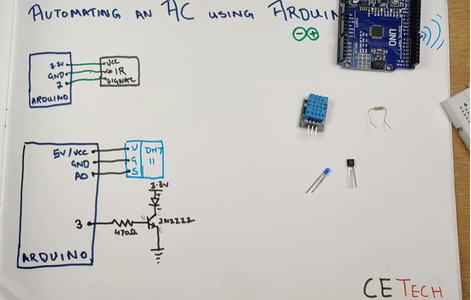 AUTOMATING AN AC USING ARDUIN
UNO
3.3V
GND
2
ARDUINO
VCC
IR
SIGNAL
5V/VCC
GND
A0
V
G
S
DHT
11
3.3V
3
470Ω
2N2222
ARDUINO
CETECH